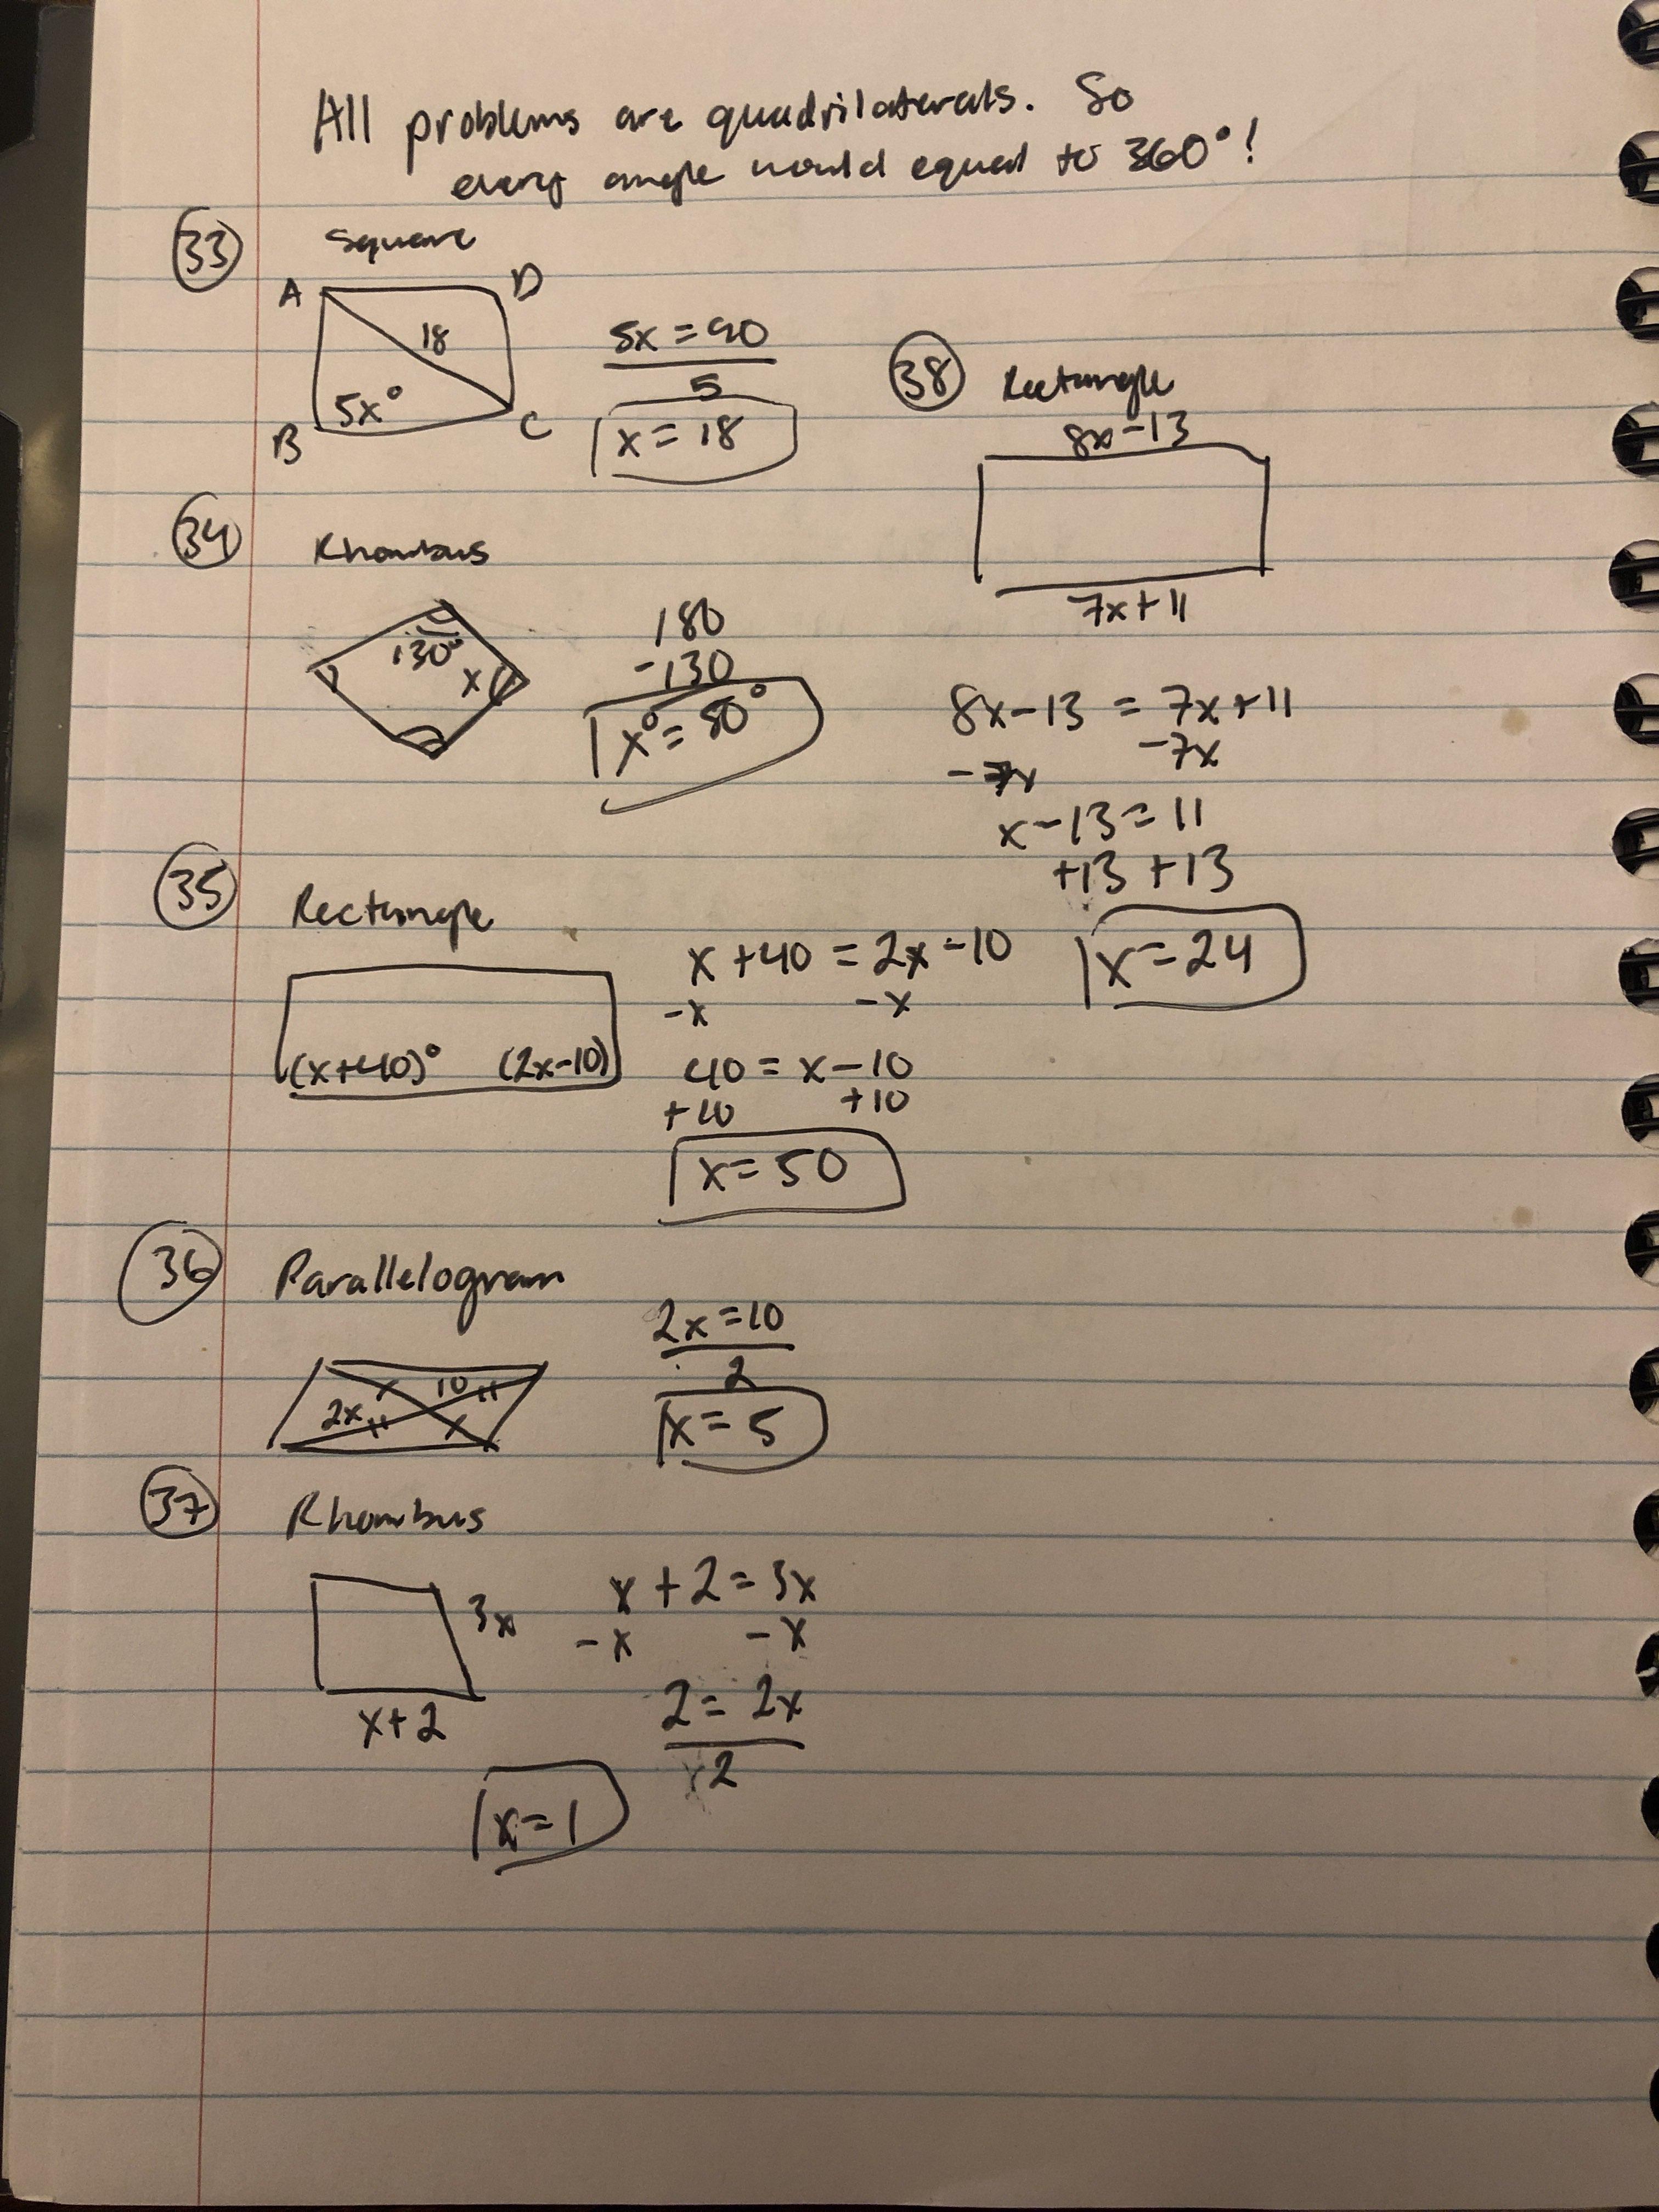 All problems are quadrilaterals. So
every angle would equal to 360°!
33
Square
A
D
18
5x°
B
C
5x = 90
5
x = 18
34
Rhombus
130°
x
180
-130
x° = 50°
35
Rectangle
(x+40)°
(2x-10)
x + 40 = 2x - 10
-x
-x
40 = x - 10
+10
+10
x = 50
36
Parallelogram
2x
10
2x = 10
2
x = 5
37
Rhombus
3x
x+2
x + 2 = 3x
-x
-x
2 = 2x
2
x = 1
38
Rectangle
8x-13
7x+11
8x-13 = 7x+11
-7x
-7x
x-13 = 11
+13 +13
x = 24